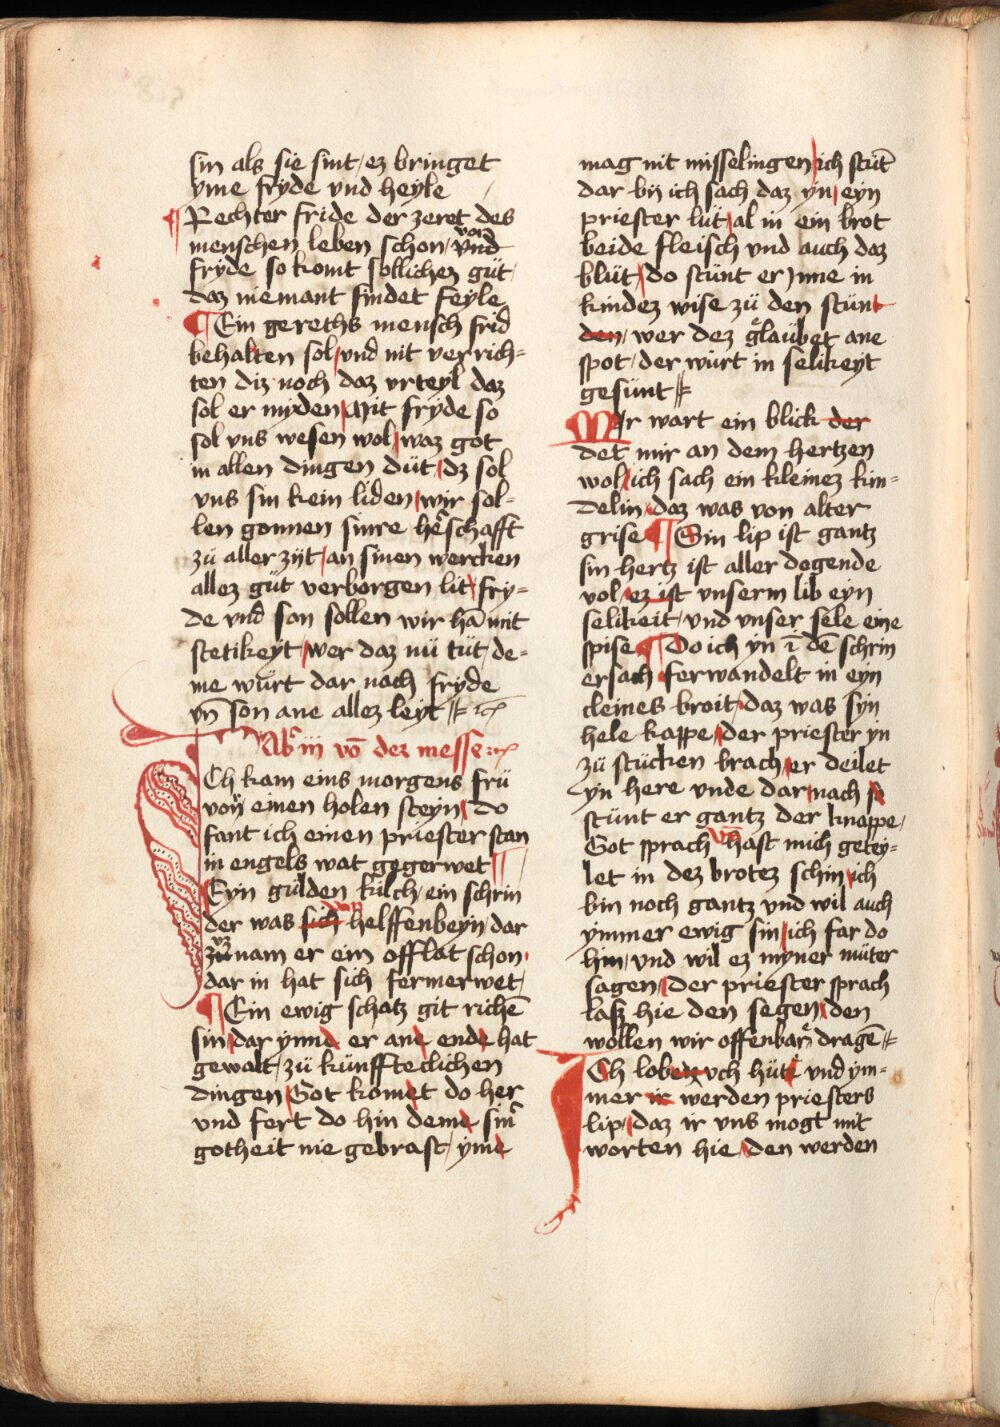 sin als sie sint / ez bringet
yme fryde vnd heyle /
¶ Rechter fride der zeret des
menschen leben schon / von
fryde so komt sollichez güt /
daz niemant findet feyle
¶ Ein gereths mensch frid
behalten sol / vnd nit verrich=
ten diz noch daz vrteyl daz
sol er myden / Mit fryde so
sol vns wesen wol / waz got
in allen dingen düt / dz sol
vns sin kein liden / wir sol=
len gonnen sinre heschafft
zü aller zyt / an sinen wercken
allez güt verborgen lit / fry=
de vnd son sollen wir hā mit
stetikeyt / wer daz nü tüt / de=
me würt dar nach fryde
vn̄ son ane allez leyt
iii vō dez messe
Ch kam eins morgens frü
von einen holen steyn / do
fant ich einen priester stan
in engels wat gegerwet
Eyn gülden kilch ein schrin
der was sich von helffenbeyn / dar
vz nam er ein offlat schon /
dar in hat sich fermerwet /
¶ Ein ewig schatz git richē
sin / dar ynne er ane ende hat
gewalt / zü künfftedichen
dingen / Got komet do her
vnd fert do hin deme sin
gotheit nie gebrast / yme
mag nit misselingen / ich stüt
dar bij ich sach daz yn / eyn
priester lüt / al in ein brot
beide fleisch vnd auch daz
blüt / do stünt er Jnne in
kindez wise zü den stünt
den / wer dez glaübet ane
spot / der würt in selikeyt
gesünt
Mir wart ein blick der
det mir an dem hertzen
wol / ich sach ein kleinez kin=
delin / daz was von alter
grise ¶ Sin lip ist gantz
sin hertz ist aller dogende
vol / ez ist vnserm lib eyn
selikeit / vnd vnser sele eine
spise ¶ Do ich yn ī dē schrin
ersach ferwandelt in eyn
cleines broit / daz was syn
hele kappe / der priester yn
zü stücken brach / er deilet
yn here vnde dar / nach so
stünt er gantz der knappe /
Got sprach vn̄ hast mich getey=
let in dez brotez schin / ich
bin noch gantz vnd wil auch
ymmer ewig sin / ich far do
hin / vnd wil ez myner müter
sagen / der priester sprach
laß hie den segen / den
wollen wir offenbar dragē
Ch loben vch hüte vnd ym=
mer ir werden priesters
lip / daz ir vns mogt mit
worten hie / den werden